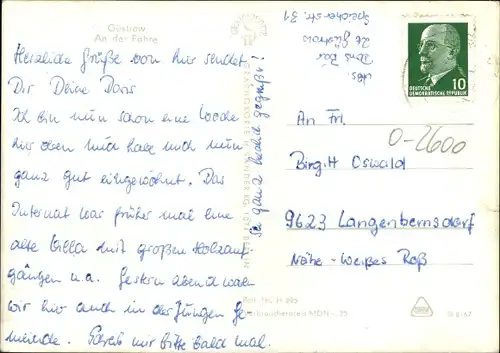 Güstrow
An der Fähre
Herzliche Grüße von hier sendet
Dir Deine Doris
Ich bin nun schon eine Woche
hier oben und habe mich nun
ganz gut eingewöhnt. Das
Internat war früher mal eine
alte Villa mit großen Holzauf-
gängen u.a. Gestern abend waren
wir hier auch in der Jungen Ge-
meinde. Schreib mir bitte bald mal.
Sei ganz herzlich gegrüßt!
Abs.
Doris
26 Güstrow
Speicherstr. 31
10
DEUTSCHE
DEMOKRATISCHE REPUBLIK
An Frl.
0-2600
Birgitt Oswald
9623 Langenbernsdorf
Nähe - Weißes Roß